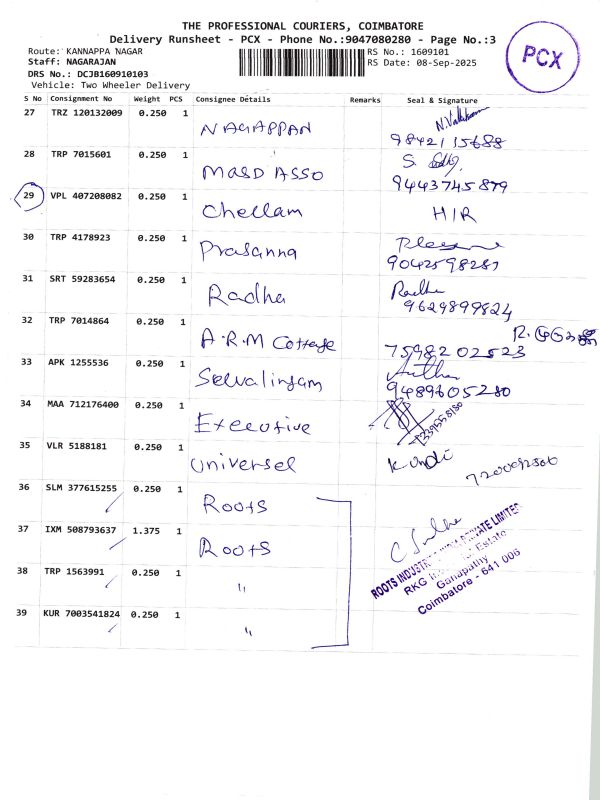 THE PROFESSIONAL COURIERS, COIMBATORE
Delivery Runsheet - PCX - Phone No.:9047080280 - Page No.:3
PCX
Route: KANNAPPA NAGAR
RS No.: 1609101
Staff: NAGARAJAN
RS Date: 08-Sep-2025
DRS No.: DCJB160910103
Vehicle: Two Wheeler Delivery
S No Consignment No Weight PCS Consignee Details Remarks Seal & Signature
27 TRZ 120132009 0.250 1 NAGAPPAN 9842115688
28 TRP 7015601 0.250 1 MASD ASSO S. 9443745879
29 VPL 407208082 0.250 1 Chellam HIR
30 TRP 4178923 0.250 1 Prasanna 9042598287
31 SRT 59283654 0.250 1 Radha Radha 9629899824
32 TRP 7014864 0.250 1 A.R.M Cottage 7598202523
33 APK 1255536 0.250 1 Selvalingam 9489605280
34 MAA 712176400 0.250 1 Executive
35 VLR 5188181 0.250 1 Universel
36 SLM 377615255 0.250 1 Roots
37 IXM 508793637 1.375 1 Roots
38 TRP 1563991 0.250 1 "
39 KUR 7003541824 0.250 1 "
ROOTS INDUSTRIES INDIA PRIVATE LIMITED
RKG Industrial Estate
Ganapathy
Coimbatore - 641 006